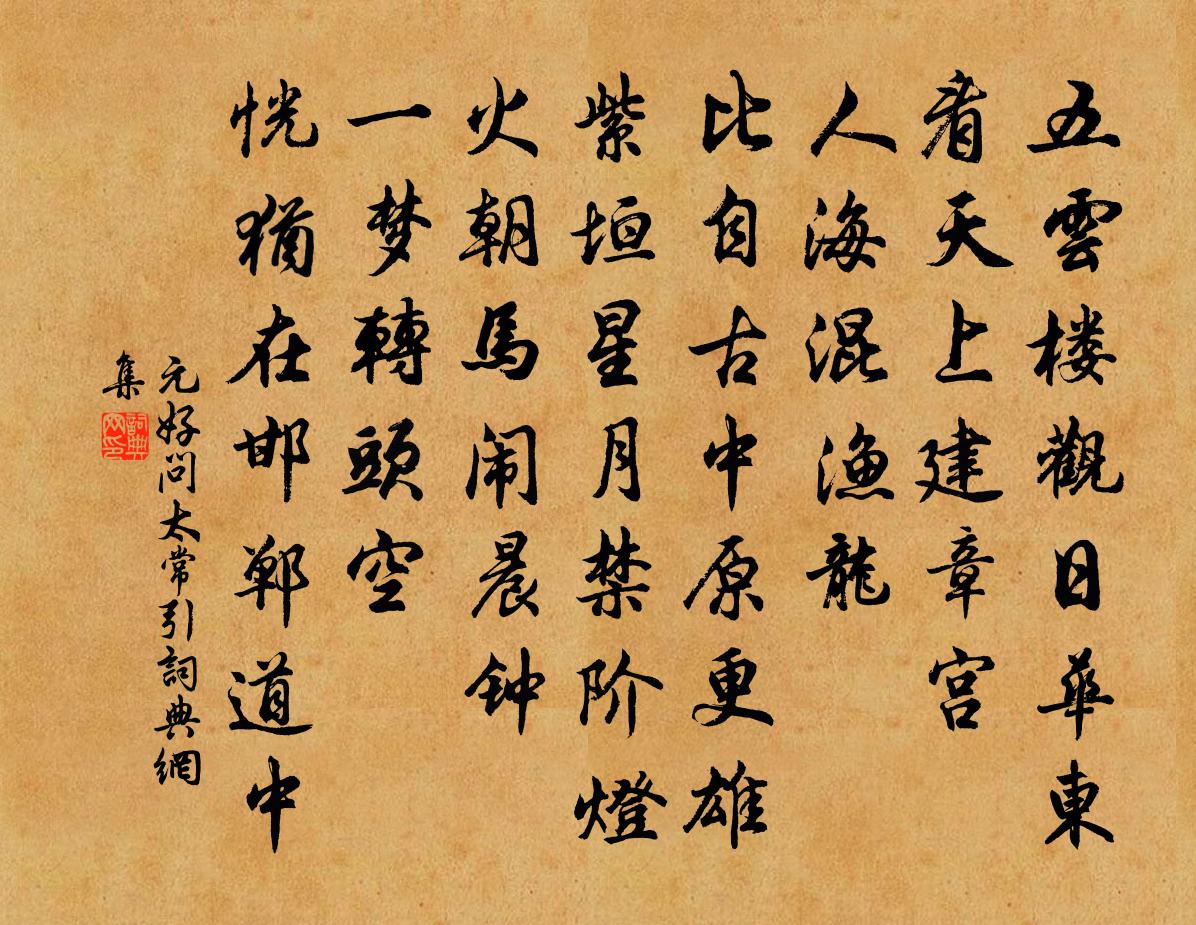 五雲楼觀日華東
看天上建章宮
人海混漁龍
比自古中原更雄
紫垣星月禁阶燈
火朝馬闹晨钟
一梦轉頭空
恍猶在邯鄲道中
元好问太常引詞典網
集
詞典网印